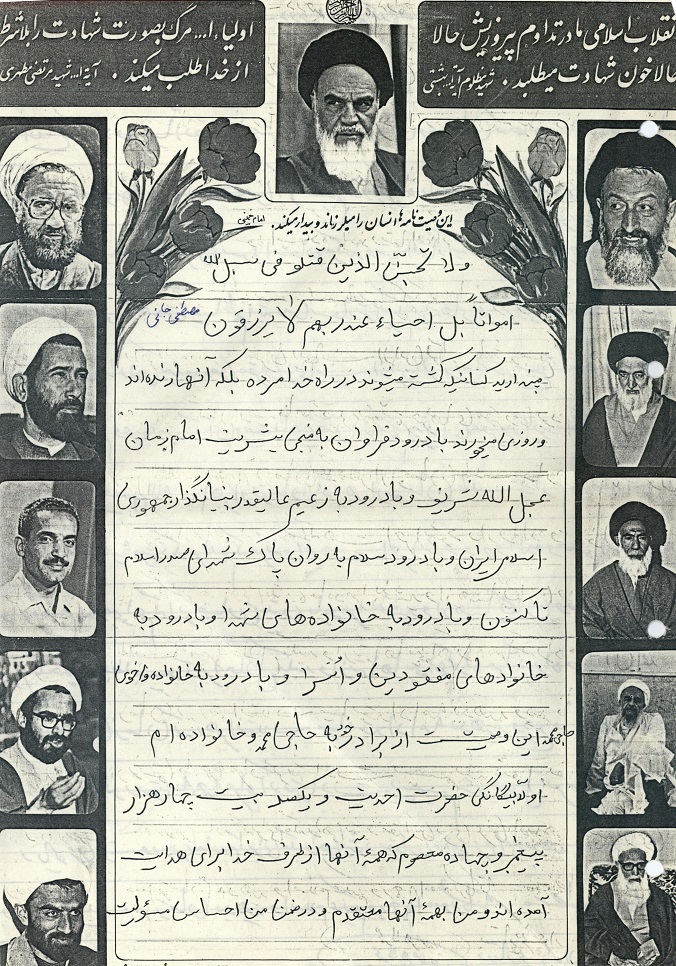 انقلاب اسلامی ما در تداوم پیروزیش حالا
حالا خون شهادت میطلبد. شهید مظلوم آیة... بهشتی
اولیاء ا... مرگ بصورت شهادت را بلاشرط
از خدا طلب میکند. آیة ا... شهید مرتضی مطهری
این وصیت نامه ها انسان را میلرزاند و بیدار میکند. امام خمینی
ولا تحسبن الذین قتلو فی سبل الله
امواتاً بل احیاء عند ربهم لا یرزقون
مصطفی
مپندارید کسانیکه کشته میشوند در راه خدا مرده بلکه آنها زنده اند
و روزی میخورند با درود فراوان به منجی بشریت امام زمان
عجل الله شریف و با درود به زعیم عالیقدر بنیانگذار جمهوری
اسلامی ایران و با درود سلام به روان پاک شهدای صدر اسلام
تا کنون و با درود به خانواده های شهدا و با درود به
خانوادهای مفقودین و اُسرا و با درود به خانواده
این وصیت از برادر به حاجی محمد و خانواده ام
اولاً بیگانگی حضرت احدیت و یکصد بیت چهار هزار
پیغمبر و چهاده معصوم که همهٔ آنها از طرف خدا برای هدایت
آمده اند و من بهمهٔ آنها معتقدم و در ضمن من احساس مسئولیت